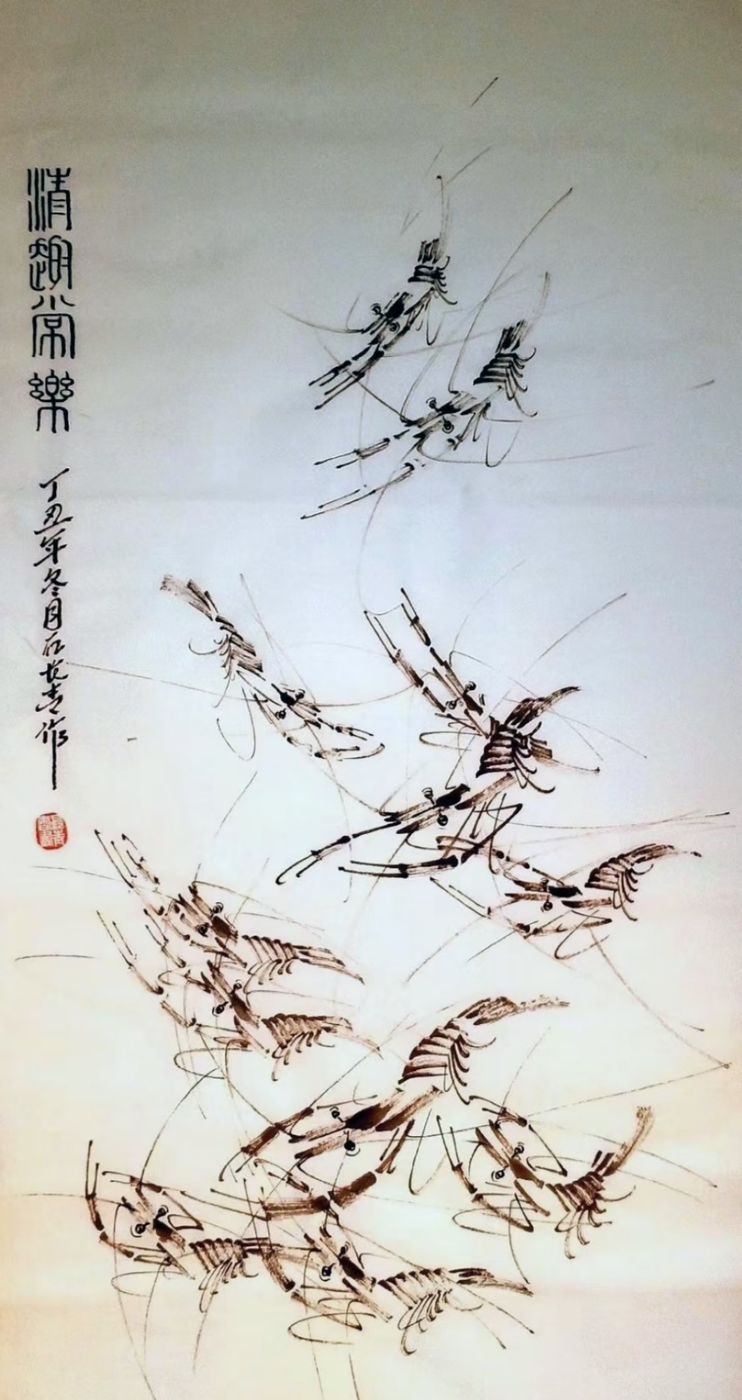 清趣常樂
丁丑年冬月石长青作